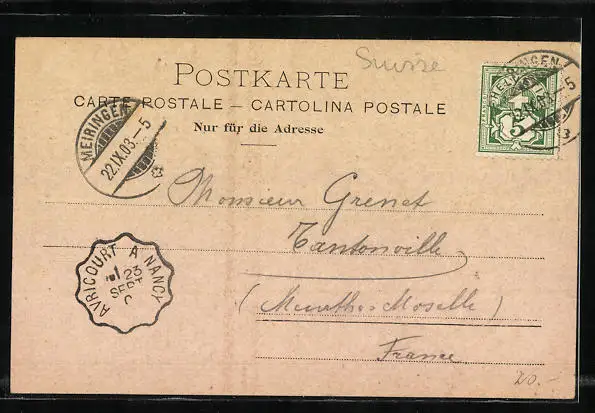 Suisse
POSTKARTE
CARTE POSTALE – CARTOLINA POSTALE
Nur für die Adresse
MEIRINGEN
22.IX.03.–5
HELVETIA
5
MEIRINGEN
–5
Monsieur Grenet
Tantonville
(Meurthe & Moselle)
France
AVRICOURT A NANCY
23
SEPT
20.-